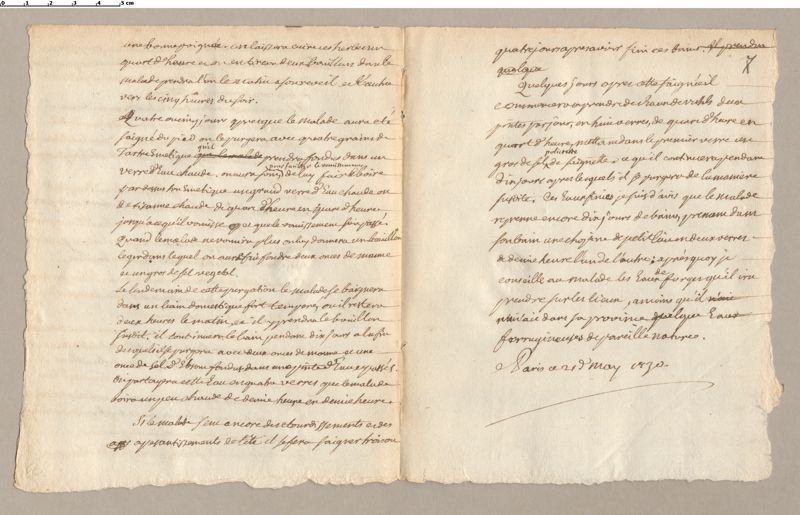 0 1 2 3 4 5 cm
une bonne poignée. on laissera cuire ces herbes un
quart d'heure et on en tirera deux bouillons dont le
malade prendra l'un le matin a son reveil et l'autre
vers les cinq heures du soir.
Quatre ou cinq jours apres que le malade aura eté
saigné du pied on le purgera avec quatre grains de
Tartre Emetique qu'il prendra fondus dans un
verre d'Eau chaude. on aura soin pour faciliter le vomissement de luy faire boire
par dessus tre Emetique un grand verre d'Eau chaude ou
de tisanne chaude de quart d'heure en quart d'heure
jusqu'a ce qu'il vomisse et que le vomissement soit passé.
Quand le malade ne vomira plus on luy donnera un bouillon
leger dans lequel on aura fait fondre deux onces de manne
et un gros de sel vegetal.
Le lendemain de cette purgation le malade se baignera
dans un bain domestique fort temperé, ou il restera
deux heures le matin, et il y prendra le bouillon
susdit. il continuera le bain pendant dix jours a la fin
desquels il se purgera avec deux onces de manne et une
once de sel d'Ebson fondus dans une pinte d'Eau
On partagera cette Eau en quatre verres que le malade
boira un peu chaude de demie heure en demie heure.
Si le malade sent encore des etourdissements et des
apesantissements de tete il se fera saigner trois ou
7
quatre jours apres avoir fini ces bains. Il prendra
quelque
Quelques jours apres cette saignée il
commencera a prendre de l'Eau de vichi deux
pintes par jour, en huit verres, de quart d'heure en
quart d'heure, mettant dans le premier verre un
gros de sel policreste de seignette. ce qu'il continuera pendant
dix jours apres lesquels il se purgera de la maniere
susdite. Ces Eaux finies je suis d'avis que le malade
reprenne encore dix jours de bains, prenant dans
son bain une chopine de petit lait en deux verres
de demie heure l'un de l'autre; apres quoy je
conseille au malade les Eaux de forges qu'il ira
prendre sur les lieux, a moins qu'il n'aie
dans sa province quelque Eaux
ferrugineuses de pareille nature.
a Paris ce 21 de May 1730.